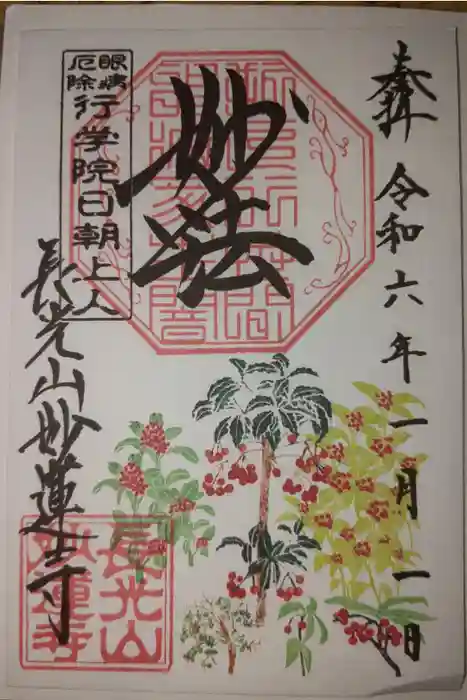 奉拝 令和六年一月一日
妙法
眼病厄除
行学院日朝上人
長光山妙蓮寺
長光山妙蓮寺